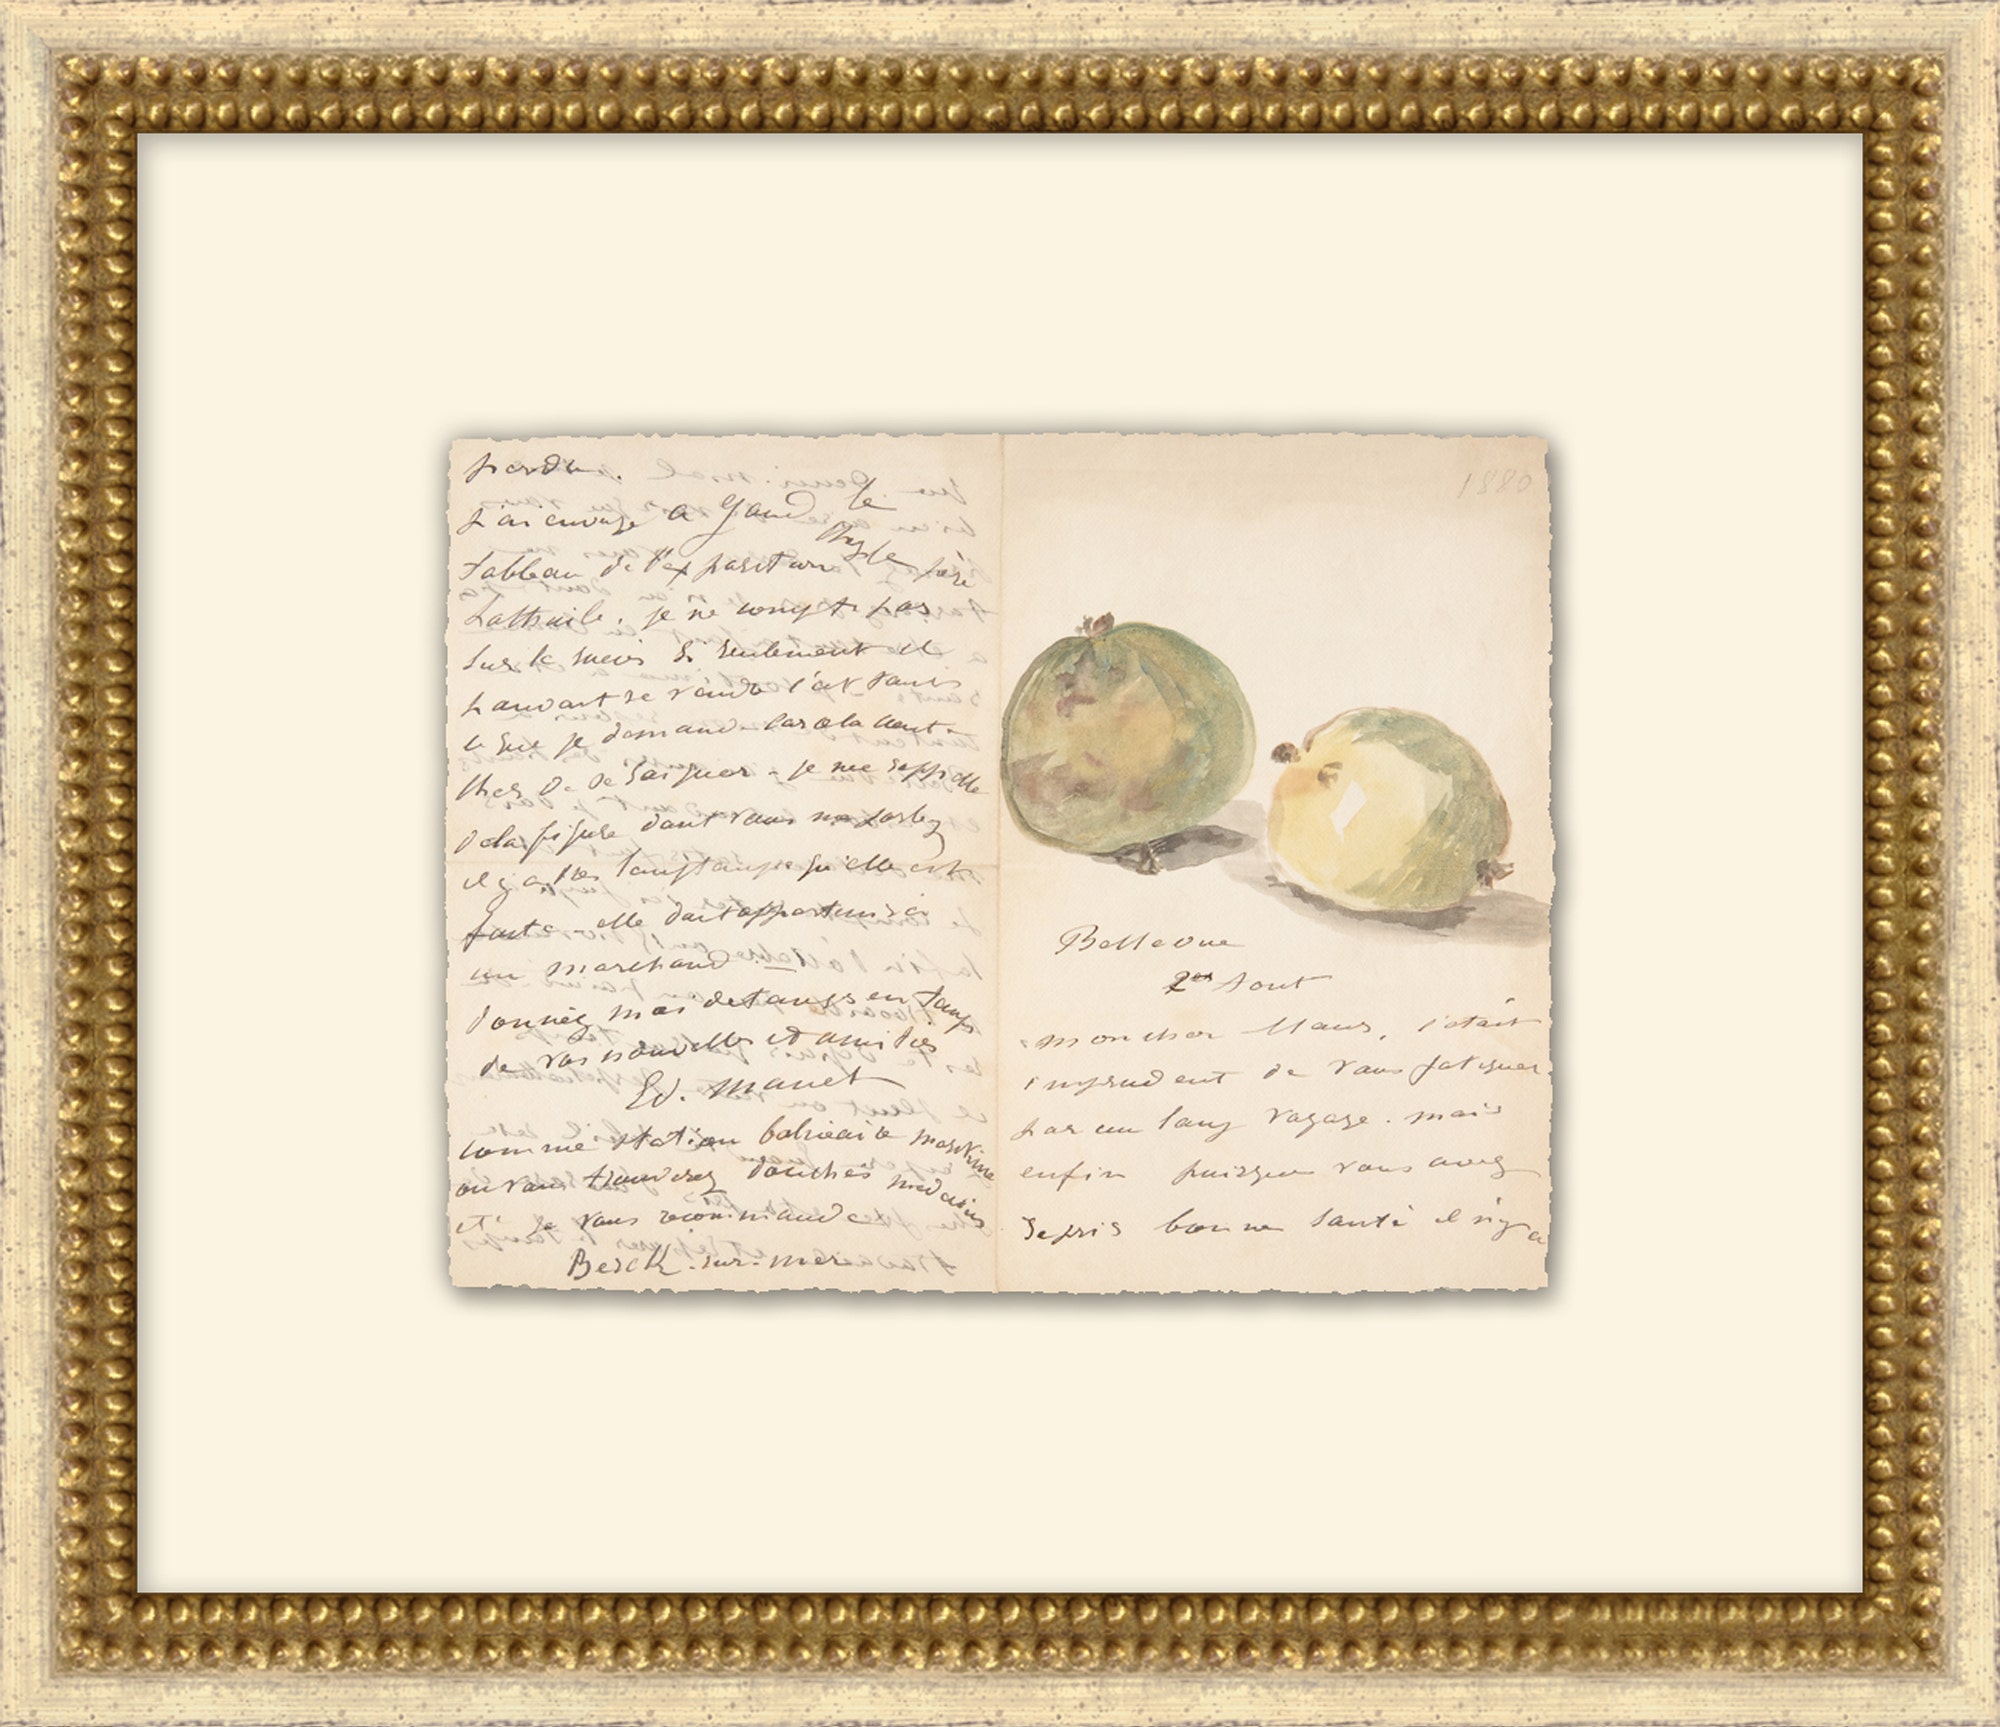 perdu.
j'ai envoyé a Gand le
tableau de l'exposition chez le père
Lathuile. je ne compte pas
sur le succès si seulement il
pouvait se vendre c'est tout
ce que je demande car cela
de la figure dont vous me parlez
il y a très longtemps qu'elle est
faite elle doit appartenir a
un marchand.
donnez moi de temps en temps
de vos nouvelles et amitiés
Ed. Manet
comme station balnéaire maritime
ou vous trouverez douches medecins
je vous recommande
Berck-sur-mer
1880
Bellevue
2 Aout
mon cher Maus, c'etait
imprudent de vous fatiguer
par un long voyage. mais
enfin puisque vous avez
repris bonne santé il n'y a